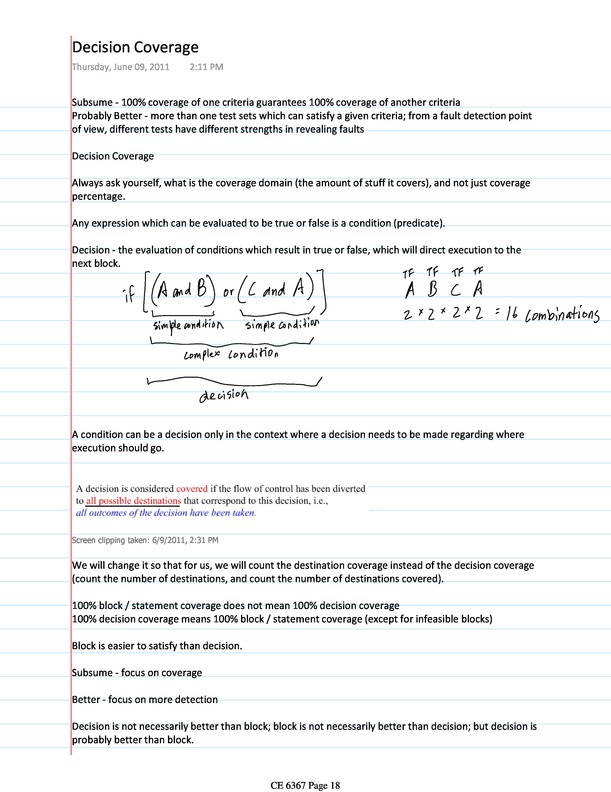 Decision Coverage
Thursday, June 09, 2011 2:11 PM
Subsume - 100% coverage of one criteria guarantees 100% coverage of another criteria
Probably Better - more than one test sets which can satisfy a given criteria; from a fault detection point
of view, different tests have different strengths in revealing faults
Decision Coverage
Always ask yourself, what is the coverage domain (the amount of stuff it covers), and not just coverage
percentage.
Any expression which can be evaluated to be true or false is a condition (predicate).
Decision - the evaluation of conditions which result in true or false, which will direct execution to the
next block.
TF TF TF TF
if [(A and B) or (C and A)]
A B C A
2 × 2 × 2 × 2 = 16 combinations
simple condition simple condition
complex condition
decision
A condition can be a decision only in the context where a decision needs to be made regarding where
execution should go.
A decision is considered covered if the flow of control has been diverted
to all possible destinations that correspond to this decision, i.e.,
all outcomes of the decision have been taken.
Screen clipping taken: 6/9/2011, 2:31 PM
We will change it so that for us, we will count the destination coverage instead of the decision coverage
(count the number of destinations, and count the number of destinations covered).
100% block / statement coverage does not mean 100% decision coverage
100% decision coverage means 100% block / statement coverage (except for infeasible blocks)
Block is easier to satisfy than decision.
Subsume - focus on coverage
Better - focus on more detection
Decision is not necessarily better than block; block is not necessarily better than decision; but decision is
probably better than block.
CE 6367 Page 18